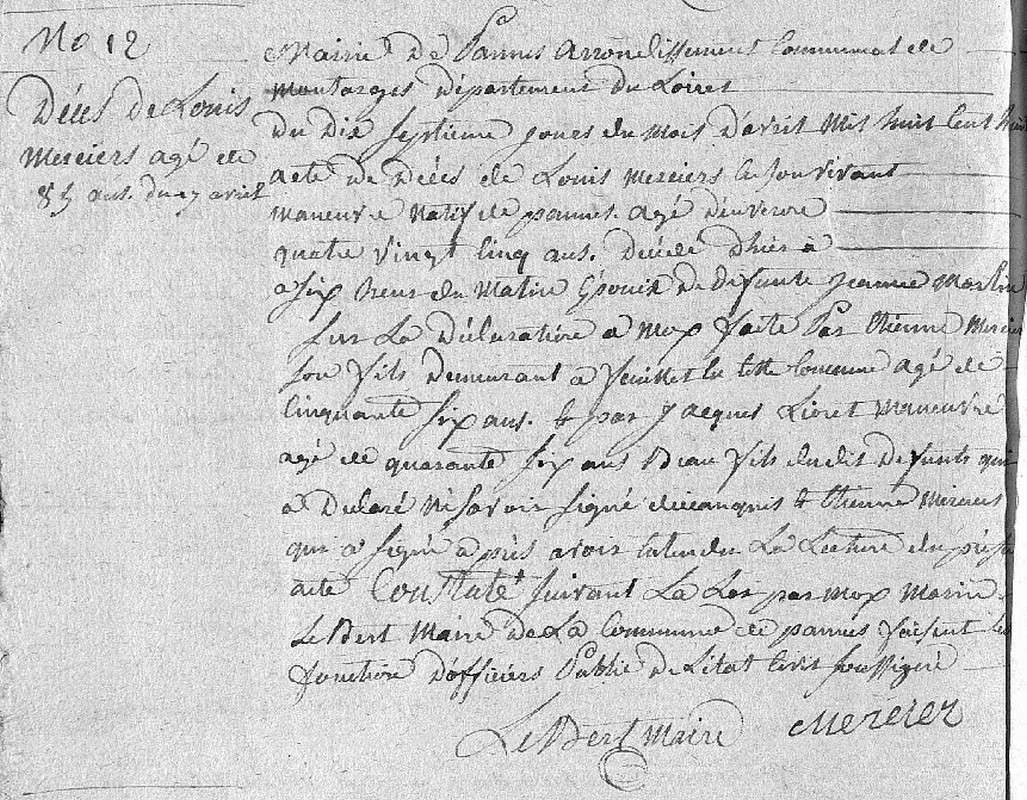 No 12
Déces de Louis
Merciers agé de
85 ans. du 17 avril
Mairie De Pannes Arrondissement Communal de
Montarges Département Du Loiret
Du Dix Septieme jours du Mois D'avril Mil huit Cent huit
acte De Déces de Louis Merciers En son vivant
maneuvre Natif de pannes. agé d'enveron
quatre vingt Cinq ans. Decedé d'hier à
a six heur du Matin Epouix De defunte Jeanne Martin
sur La Déclaratione a Moy faete Par Etienne Mercier
son fils Demeurant a en cette Commune agé de
Cinquante six ans. & par Jacques Lioret Maneuvre
agé de quarante six ans Beau fils dudit defunts qui
a Declaré Ne savoir signé & Etienne Merciers
qui a signé après avoir Entendu La Lecture du présent
acte Constaté suivant La Loy par Moy Marin
LeBert Maire De La Commune de pannes faisent Les
fonctione D'officiers Public De L'etat Civil soussigné
LeBert Maire Mercier